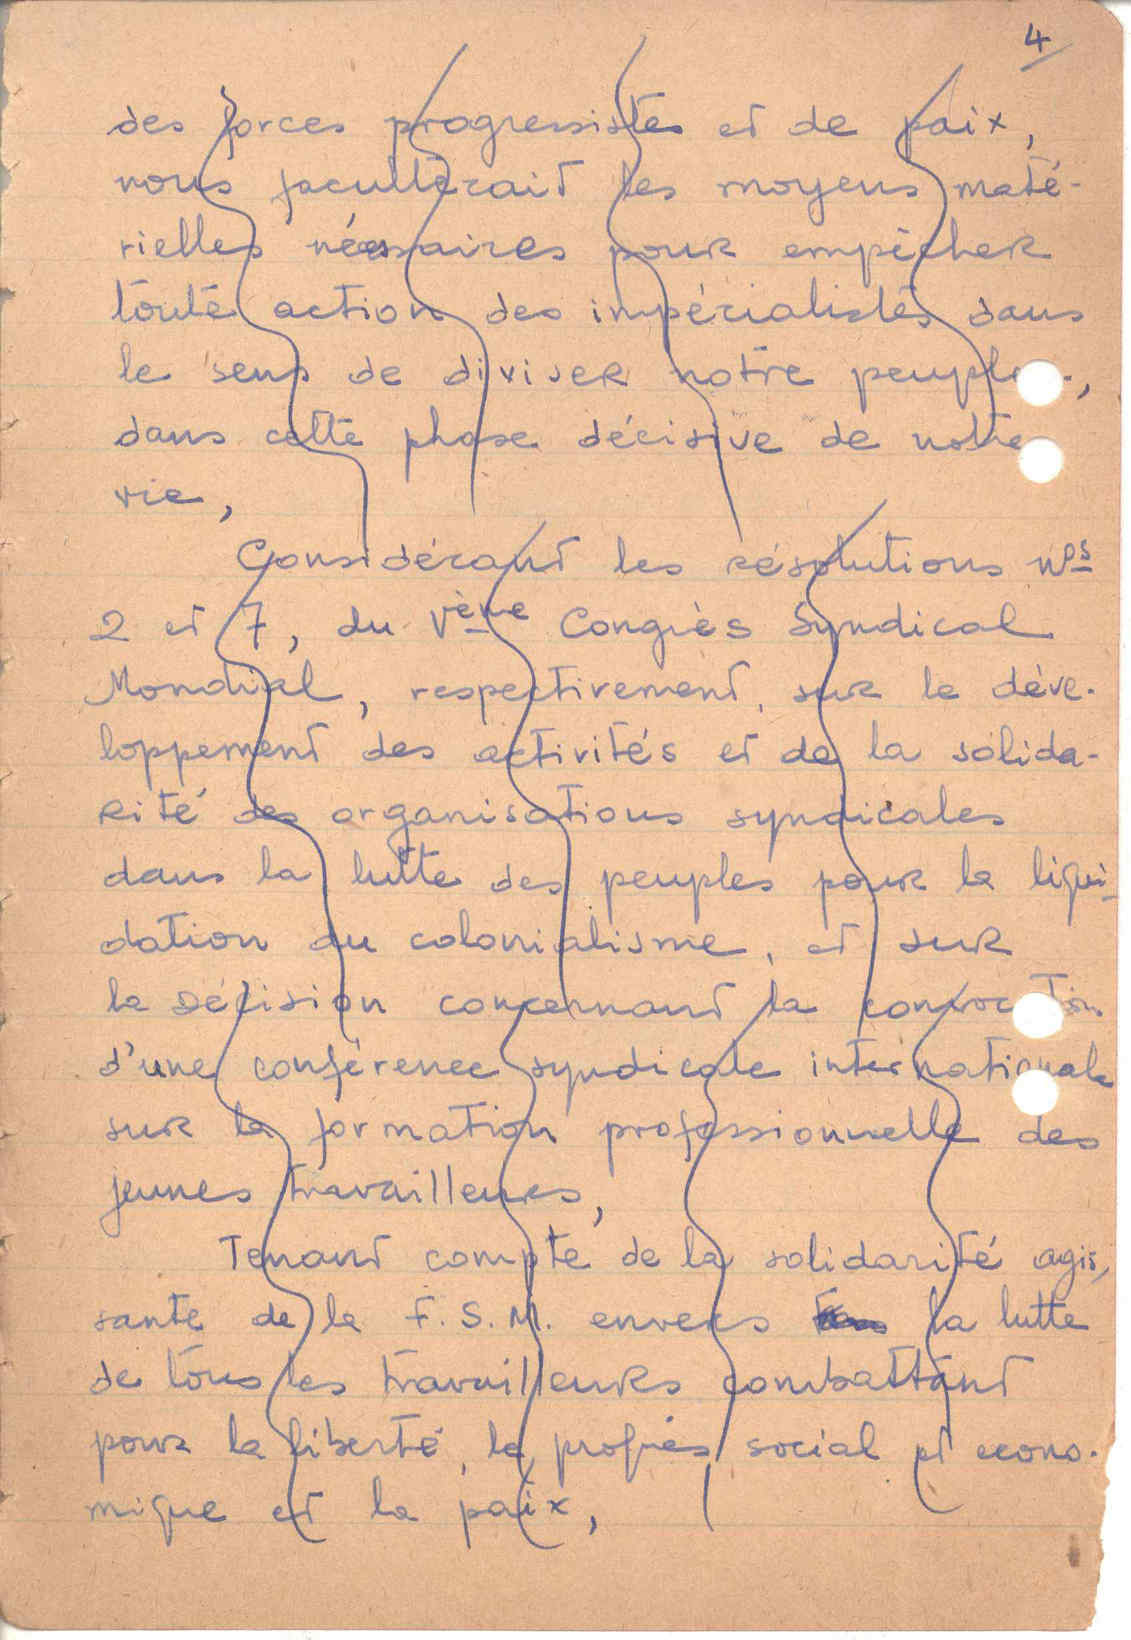 4
des forces progressistes et de paix,
nous faculterait les moyens maté-
rielles nécessaires pour empêcher
toute action des impérialistes dans
le sens de diviser notre peuple,
dans cette phase décisive de notre
vie,
Considérant les résolutions nºs
2 et 7, du Vème Congrès Syndical
Mondial, respectivement, sur le déve-
loppement des activités et de la solida-
rité des organisations syndicales
dans la lutte des peuples pour la liqui-
dation du colonialisme, et sur
la décision concernant la convocation
d'une conférence syndicale internationale
sur la formation professionnelle des
jeunes travailleurs,
Tenant compte de la solidarité agis,
sante de la F.S.M. envers la lutte
de tous les travailleurs combattant
pour la liberté, le progrès social et econo-
mique et la paix,